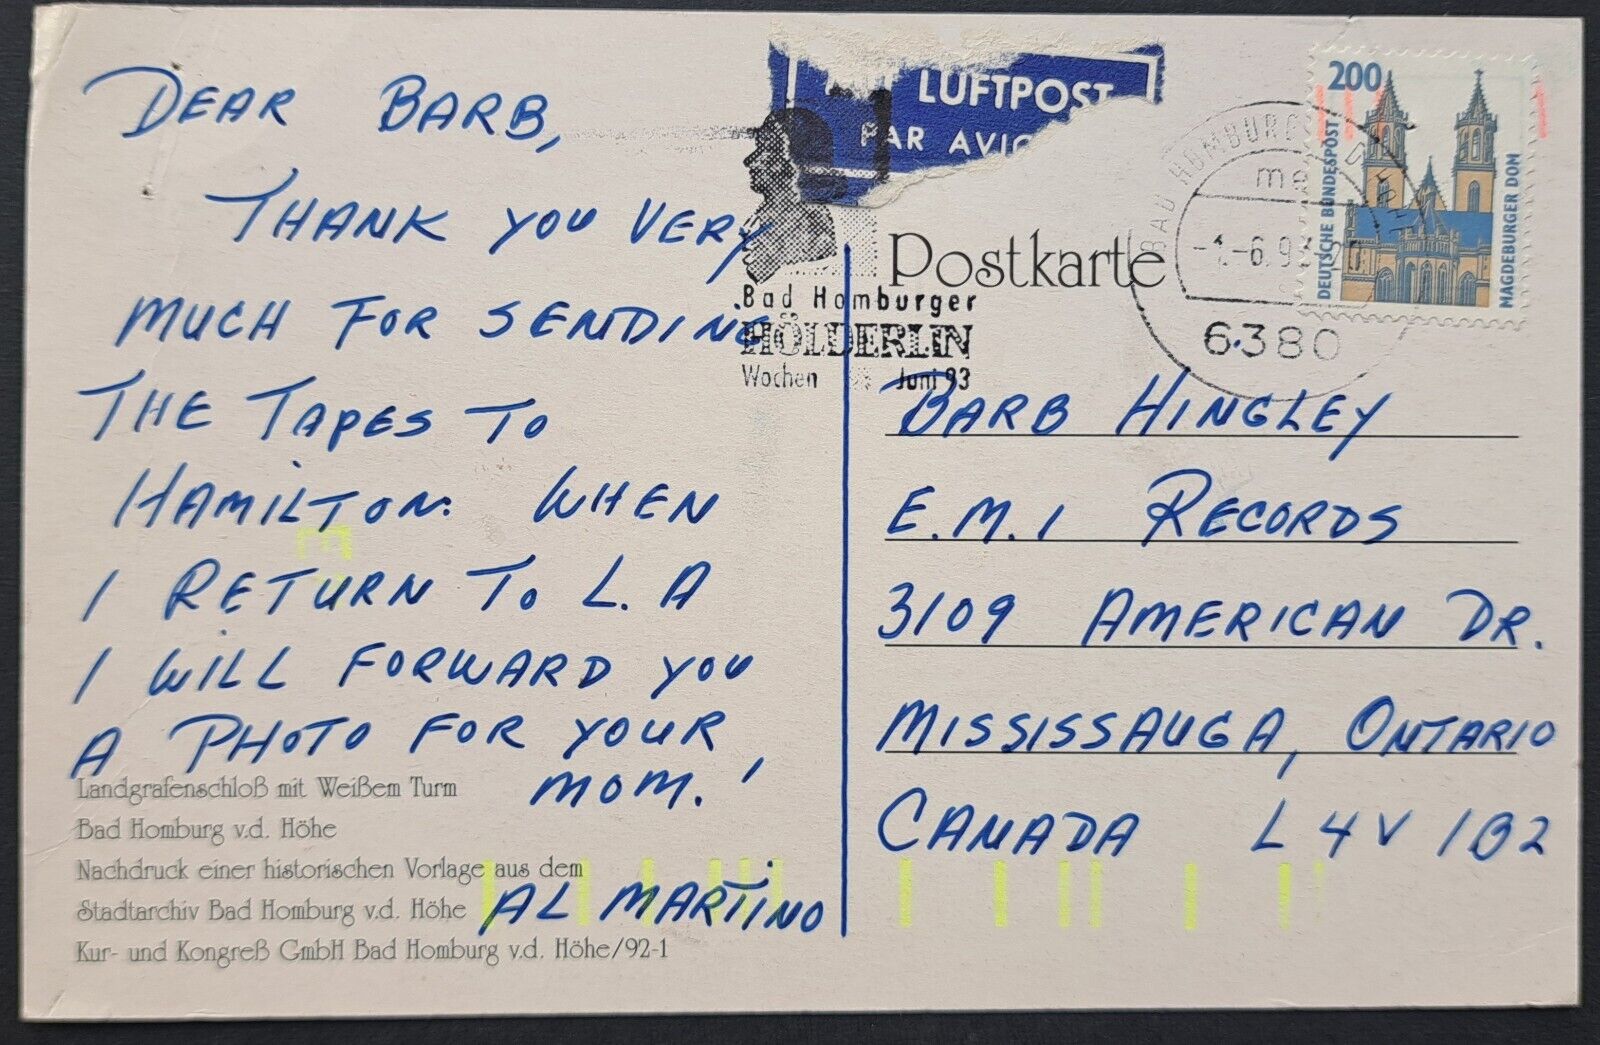 DEAR BARB,
THANK YOU VERY
MUCH FOR SENDING
THE TAPES TO
HAMILTON. WHEN
I RETURN TO L.A
I WILL FORWARD YOU
A PHOTO FOR YOUR
MOM.!
AL MARTINO
Landgrafenschloß mit Weißem Turm
Bad Homburg v.d. Höhe
Nachdruck einer historischen Vorlage aus dem
Stadtarchiv Bad Homburg v.d. Höhe
Kur- und Kongreß GmbH Bad Homburg v.d. Höhe/92-1
LUFTPOST
PAR AVIO
Bad Homburger
HÖLDERLIN
Wochen Juni 93
Postkarte
BAD HOMBURG
6380
200
DEUTSCHE BUNDESPOST
MAGDEBURGER DOM
BARB HINGLEY
E.M.I RECORDS
3109 AMERICAN DR.
MISSISSAUGA, ONTARIO
CANADA L4V 1B2